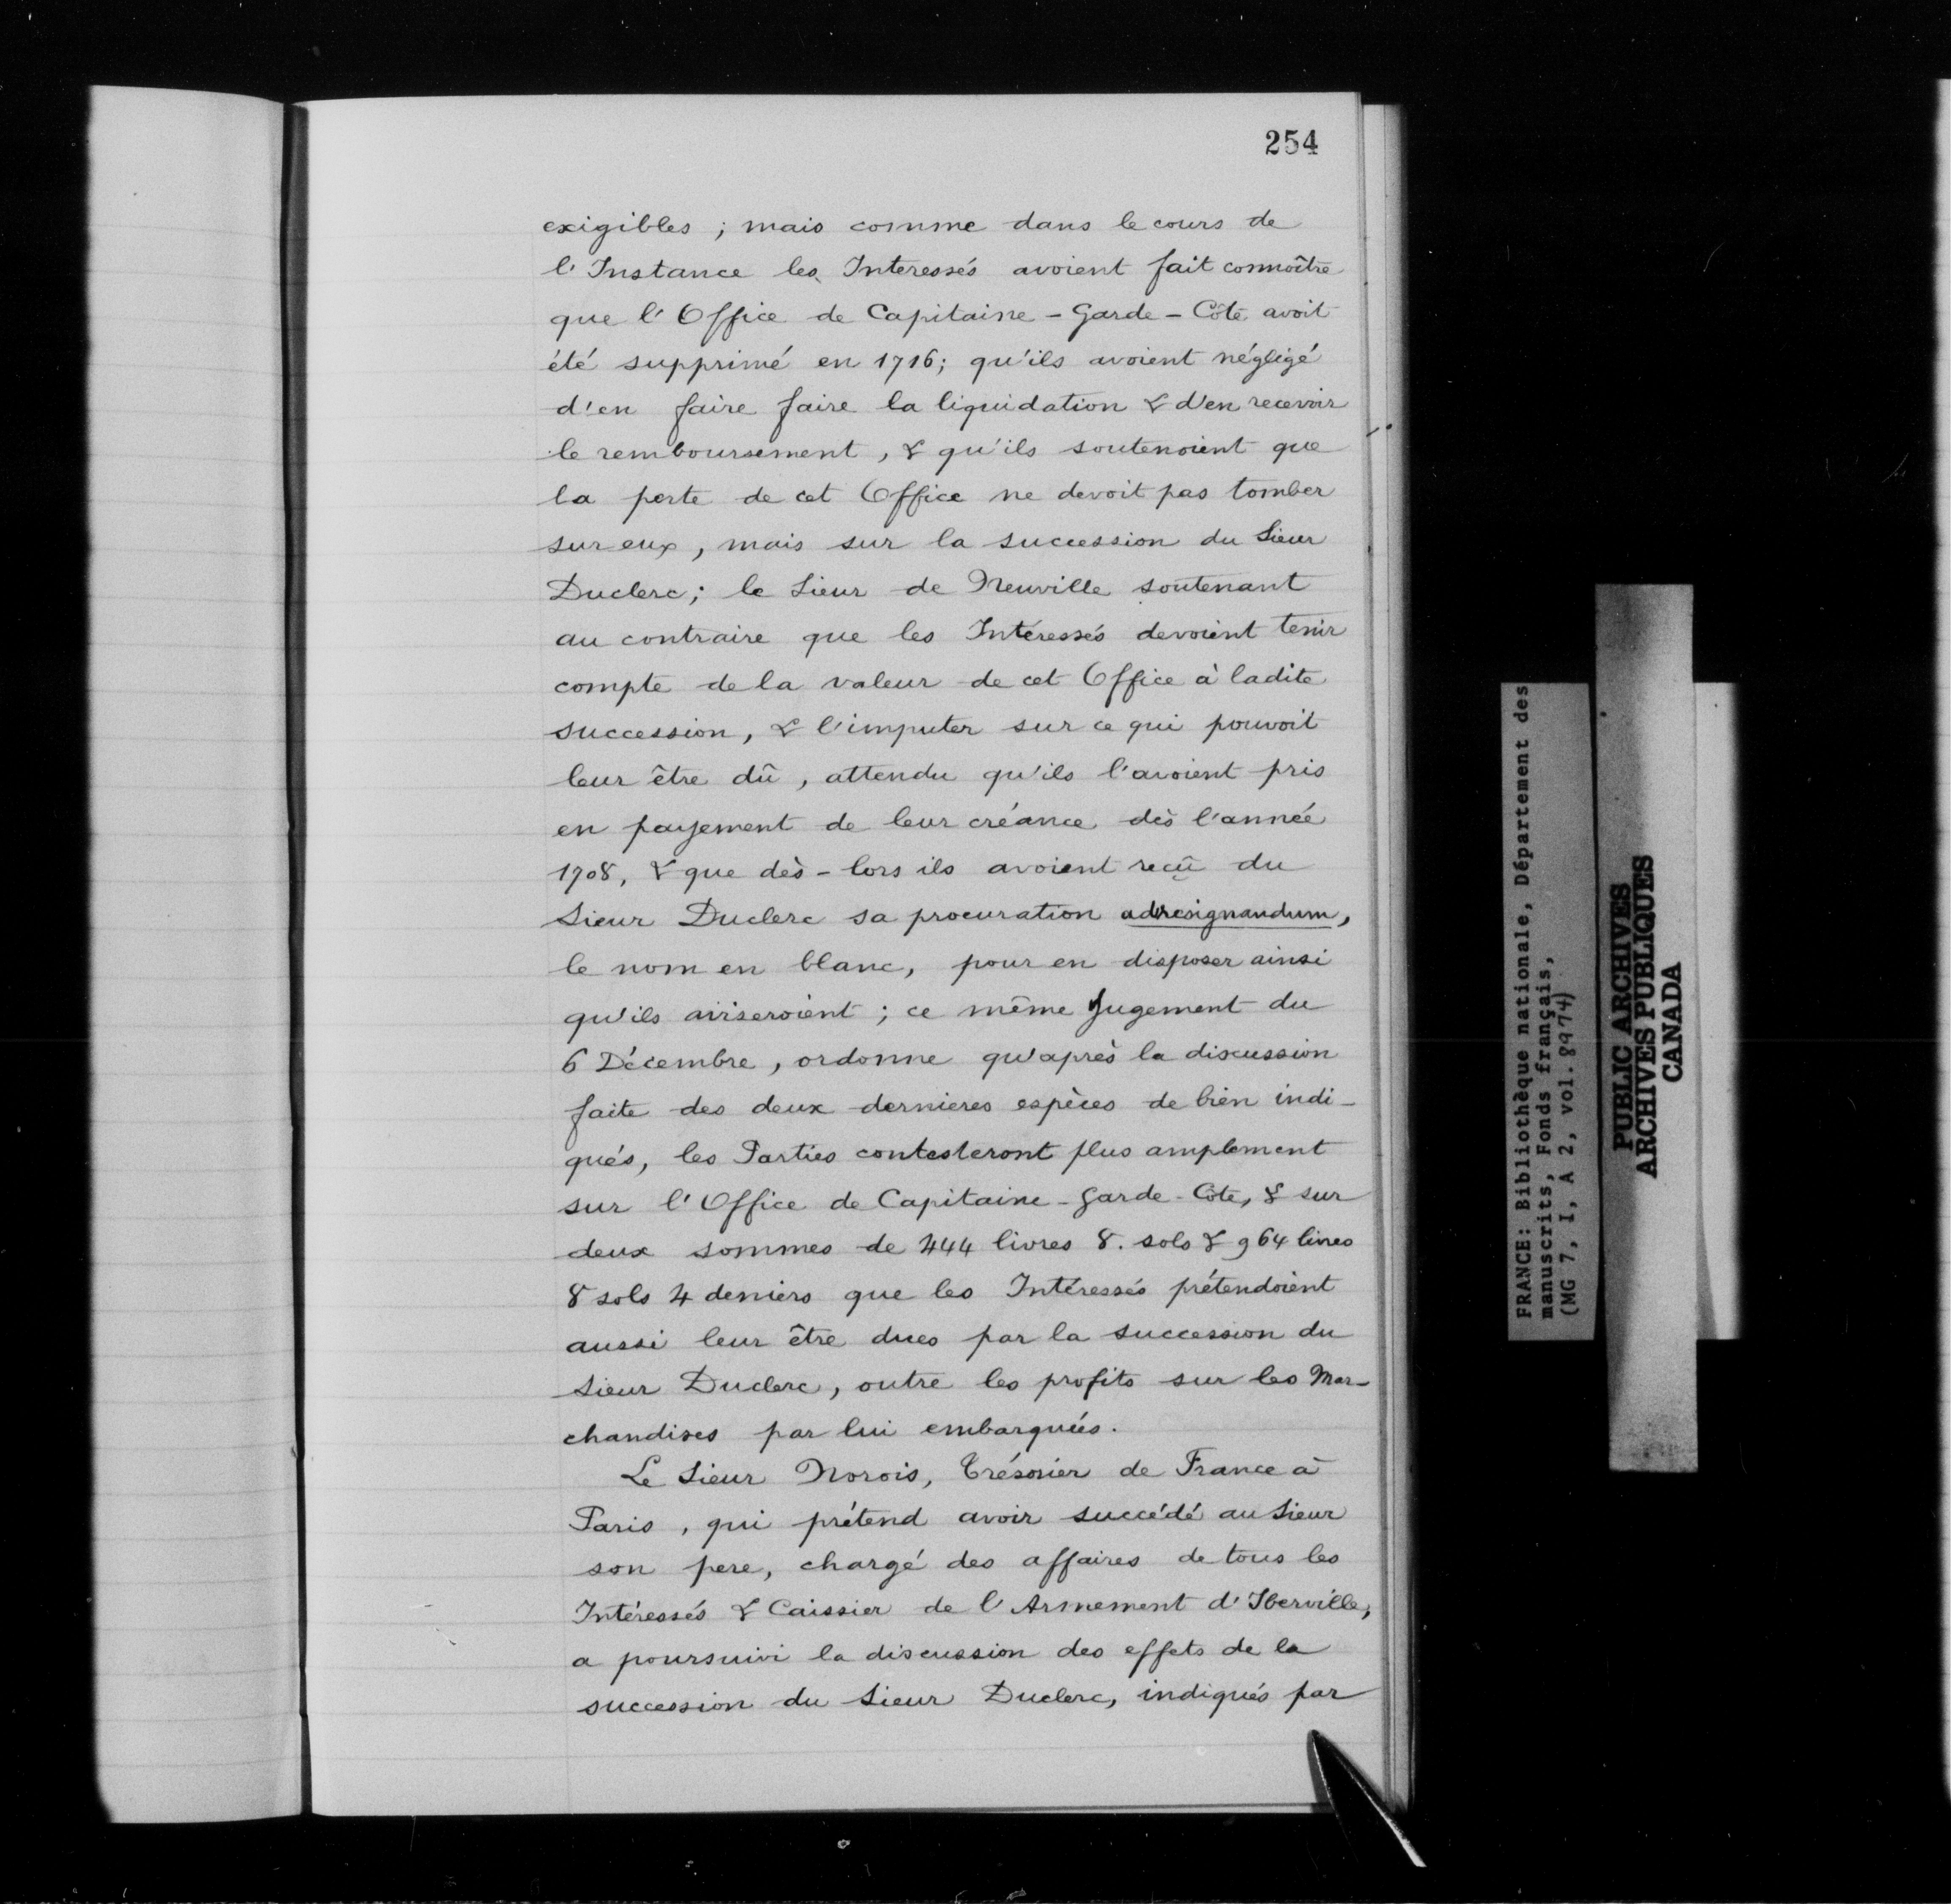 254
exigibles ; mais comme dans le cours de
l'Instance les Interessés avoient fait connoître
que l'Office de Capitaine - Garde - Côte avoit
été supprimé en 1716; qu'ils avoient négligé
d'en faire faire la liquidation & d'en recevoir
le remboursement, & qu'ils soutenoient que
la perte de cet Office ne devoit pas tomber
sur eux, mais sur la succession du Sieur
Duclerc; le Sieur de Neuville soutenant
au contraire que les Intéressés devoient tenir
compte de la valeur de cet Office à ladite
succession, & l'imputer sur ce qui pouvoit
leur être dû, attendu qu'ils l'avoient pris
en payement de leur créance dès l'année
1708, & que dès - lors ils avoient reçû du
Sieur Duclerc sa procuration ad resignandum,
le nom en blanc, pour en disposer ainsi
qu'ils aviseroient ; ce même Jugement du
6 Décembre, ordonne qu'après la discussion
faite des deux dernieres espèces de bien indi-
qués, les Parties contesteront plus amplement
sur l'Office de Capitaine - Garde - Côte, & sur
deux sommes de 444 livres 8. sols & 964 livres
8 sols 4 deniers que les Intéressés prétendoient
aussi leur être dues par la succession du
Sieur Duclerc, outre les profits sur les Mar-
chandises par lui embarquées.
Le Sieur Norois, Trésorier de France à
Paris, qui prétend avoir succédé au Sieur
son pere, chargé des affaires de tous les
Intéressés & Caissier de l'Armement d'Iberville,
a poursuivi la discussion des effets de la
succession du Sieur Duclerc, indiqués par
FRANCE: Bibliothèque nationale, Département des
manuscrits, Fonds français,
(MG 7, I, A 2, vol. 8974)
PUBLIC ARCHIVES
ARCHIVES PUBLIQUES
CANADA